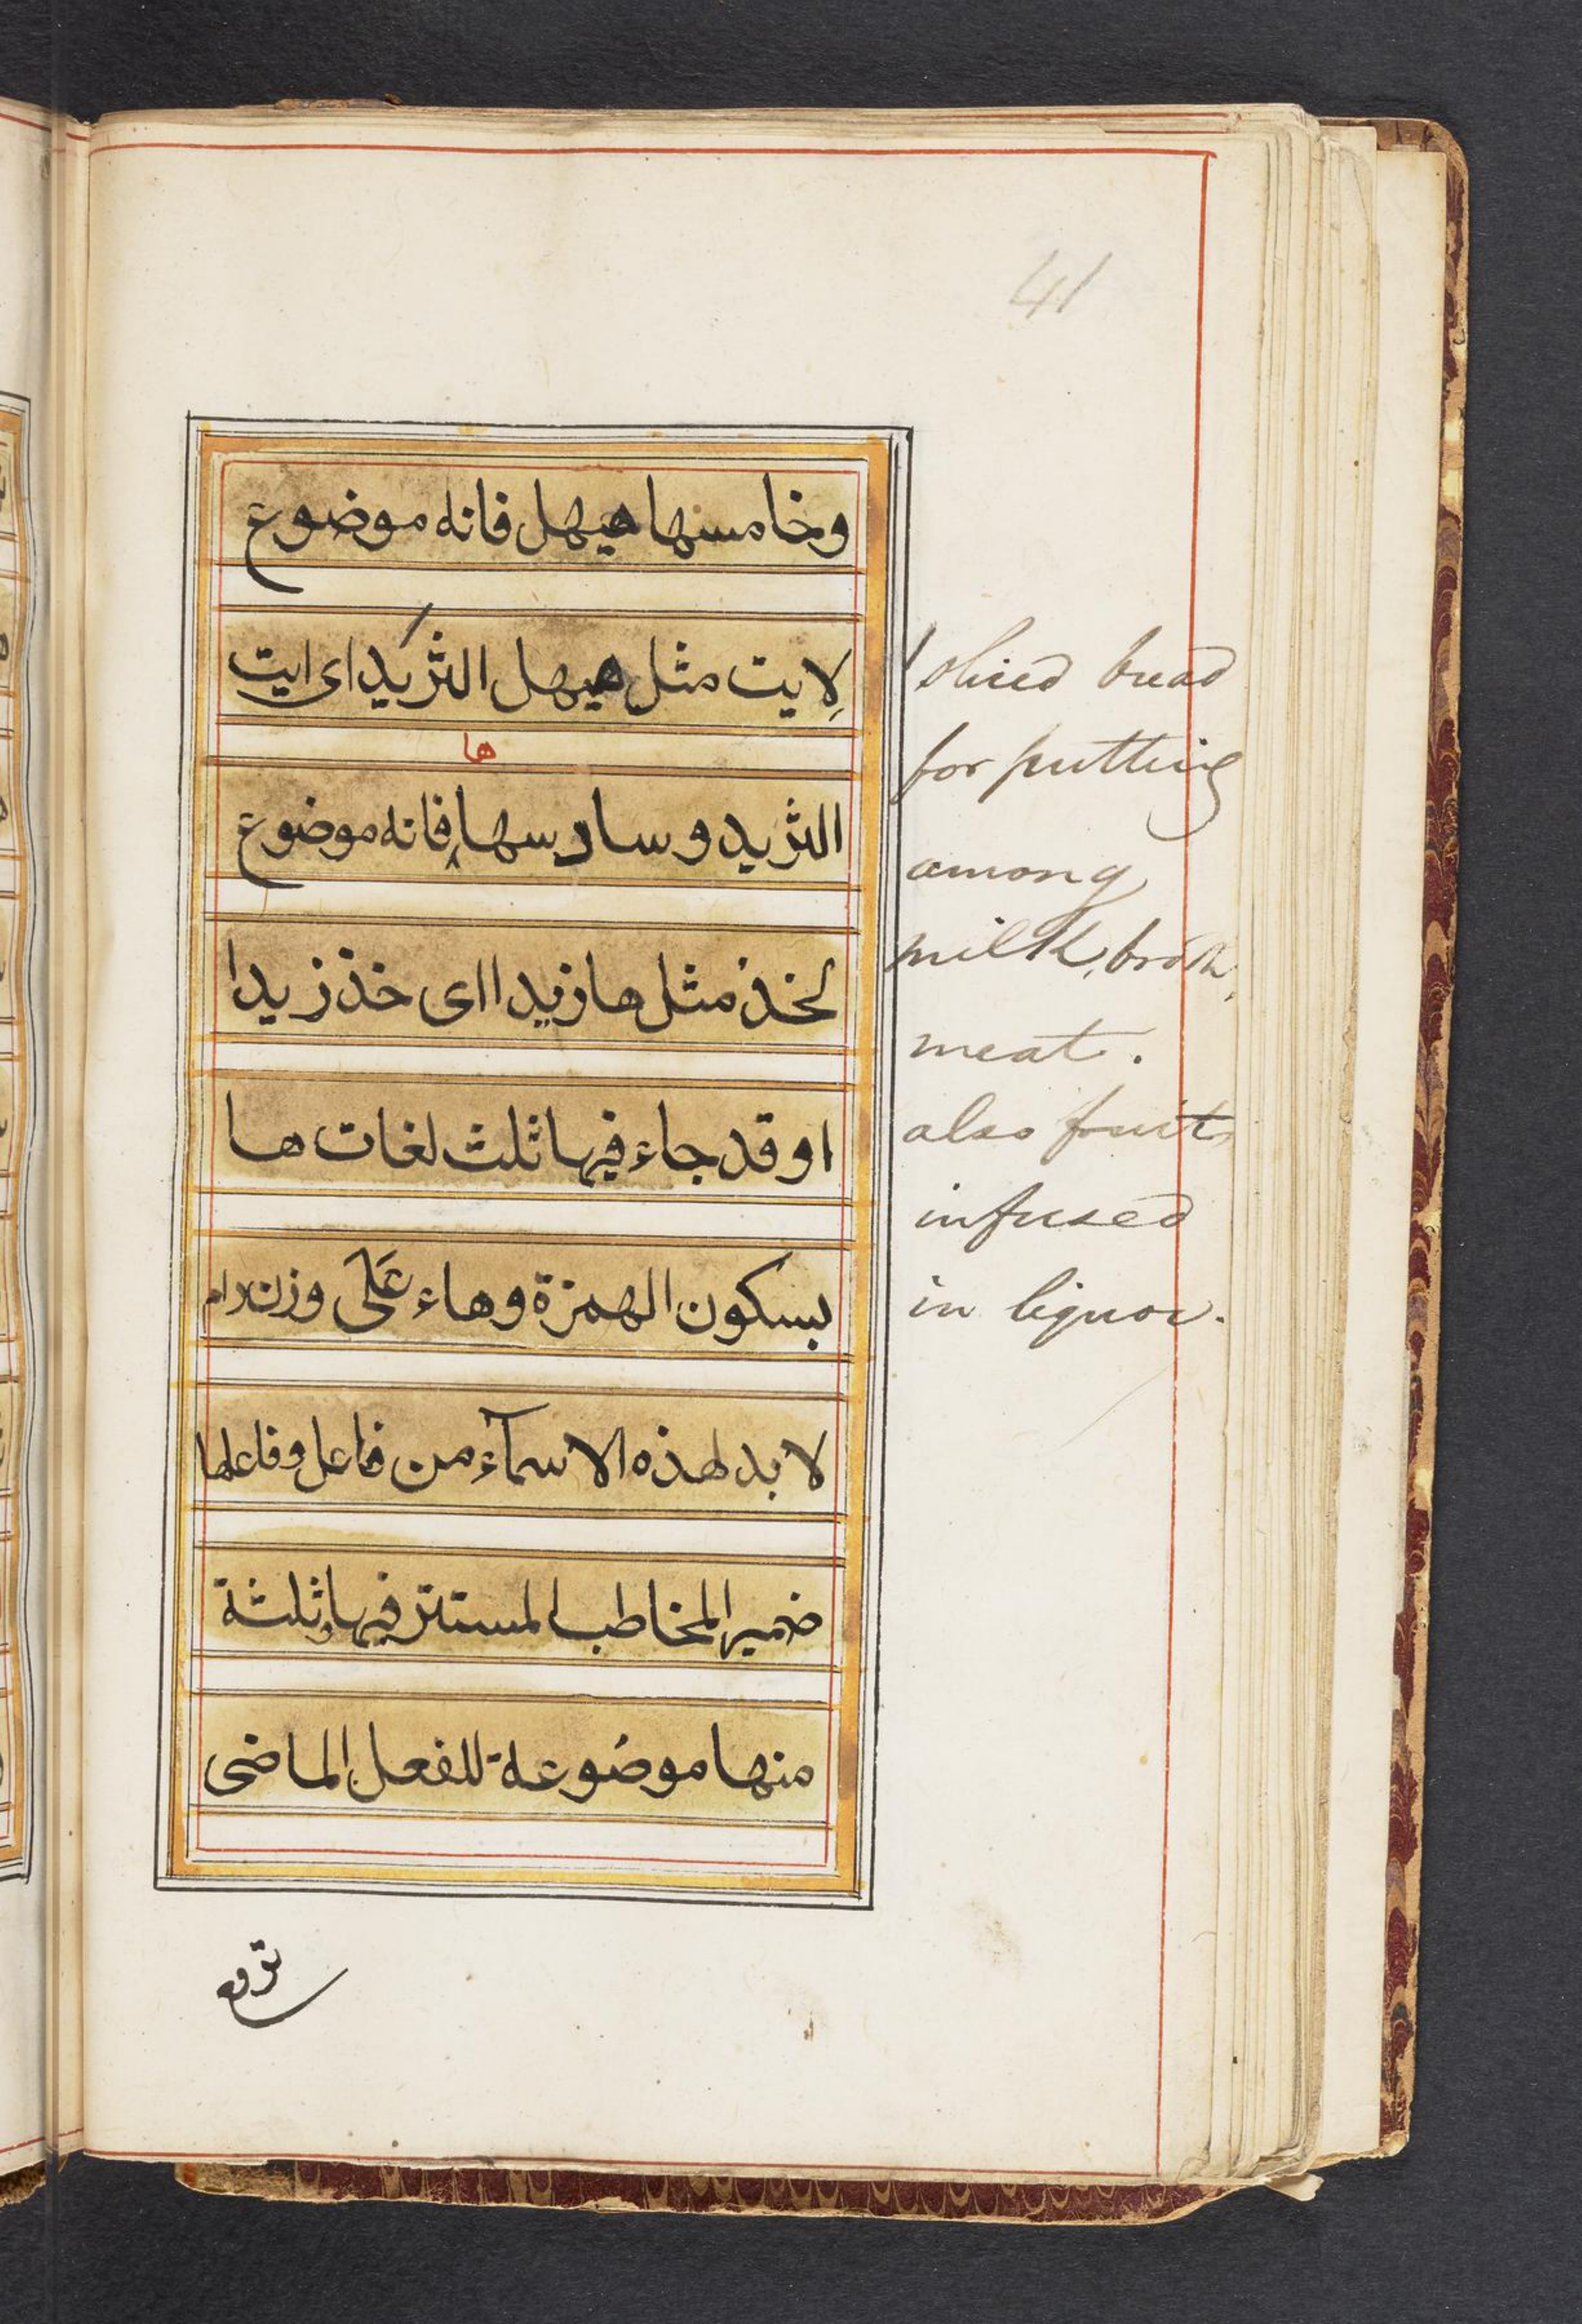 41
وخامسها هيهل فانه موضوع
لايت مثل هيهل الثريد اى ايت
ها
الثريد وسادسها فانه موضوع
لخذ مثل ها زيدا اى خذ زيدا
او قد جاء فيها ثلث لغات ها
بسكون الهمزة وهاء على وزن رام
لا بد لهذه الاسمآء من فاعل وفاعلها
ضمير المخاطب المستتر فيها وثلثة
منها موضوعة للفعل الماضى
sliced bread
for putting
among
milk, broth,
meat.
also fruit
infused
in liquor.